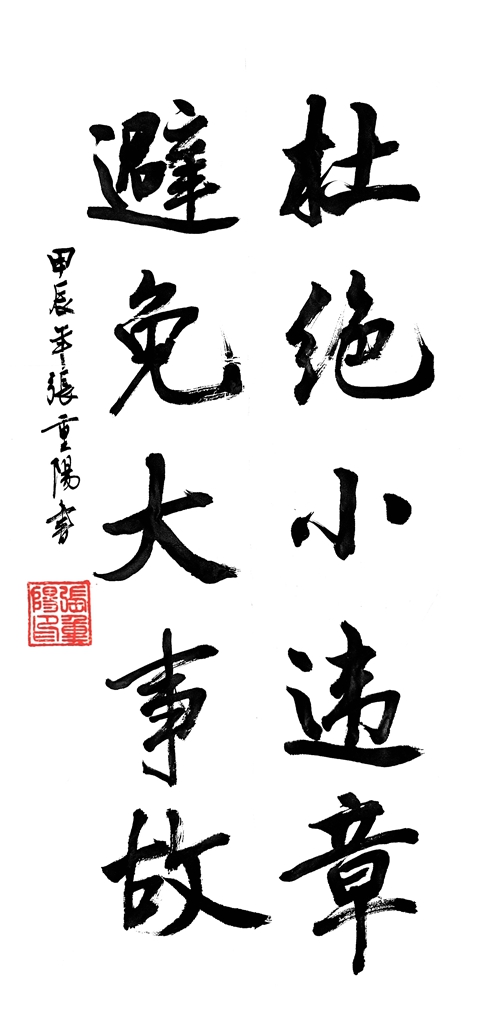 杜绝小违章
避免大事故
甲辰年張重陽書
張重陽印